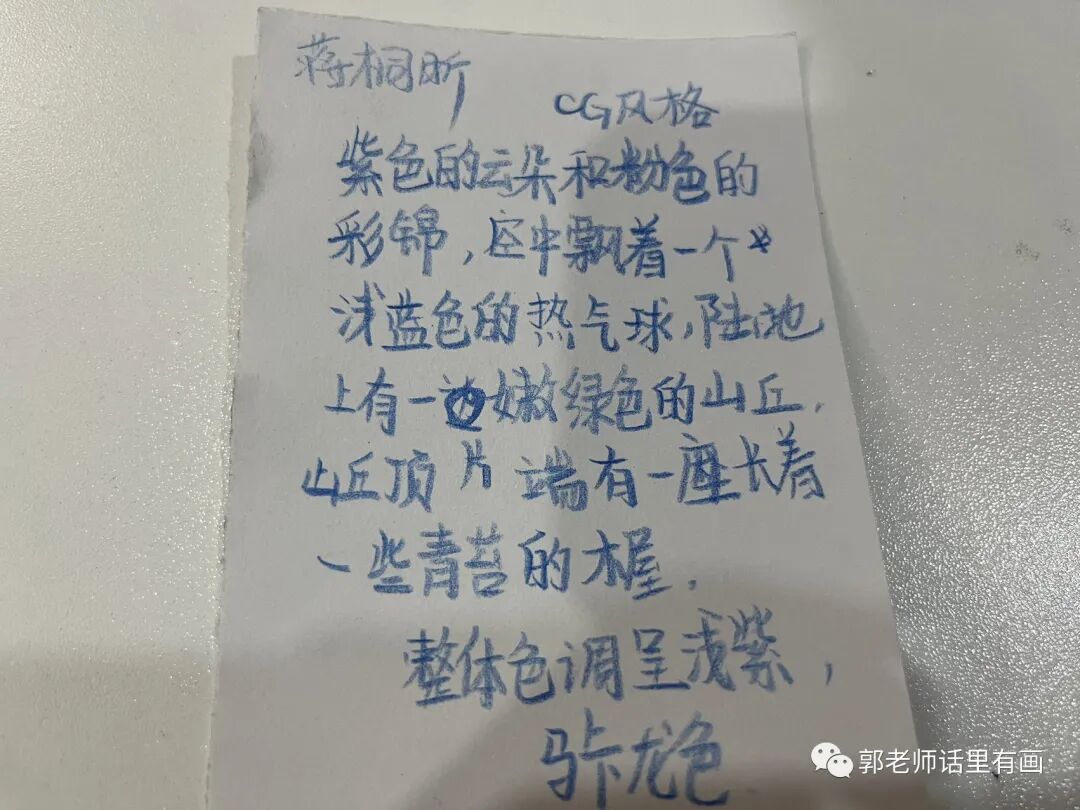 蒋桐昕
CG风格
紫色的云朵和粉色的
彩锦,空中飘着一个
浅蓝色的热气球,陆地
上有一边嫩绿色的山丘,
山丘顶片端有一座长着
一些青苔的木屋,
整体色调呈浅紫,
马卡龙色
郭老师话里有画